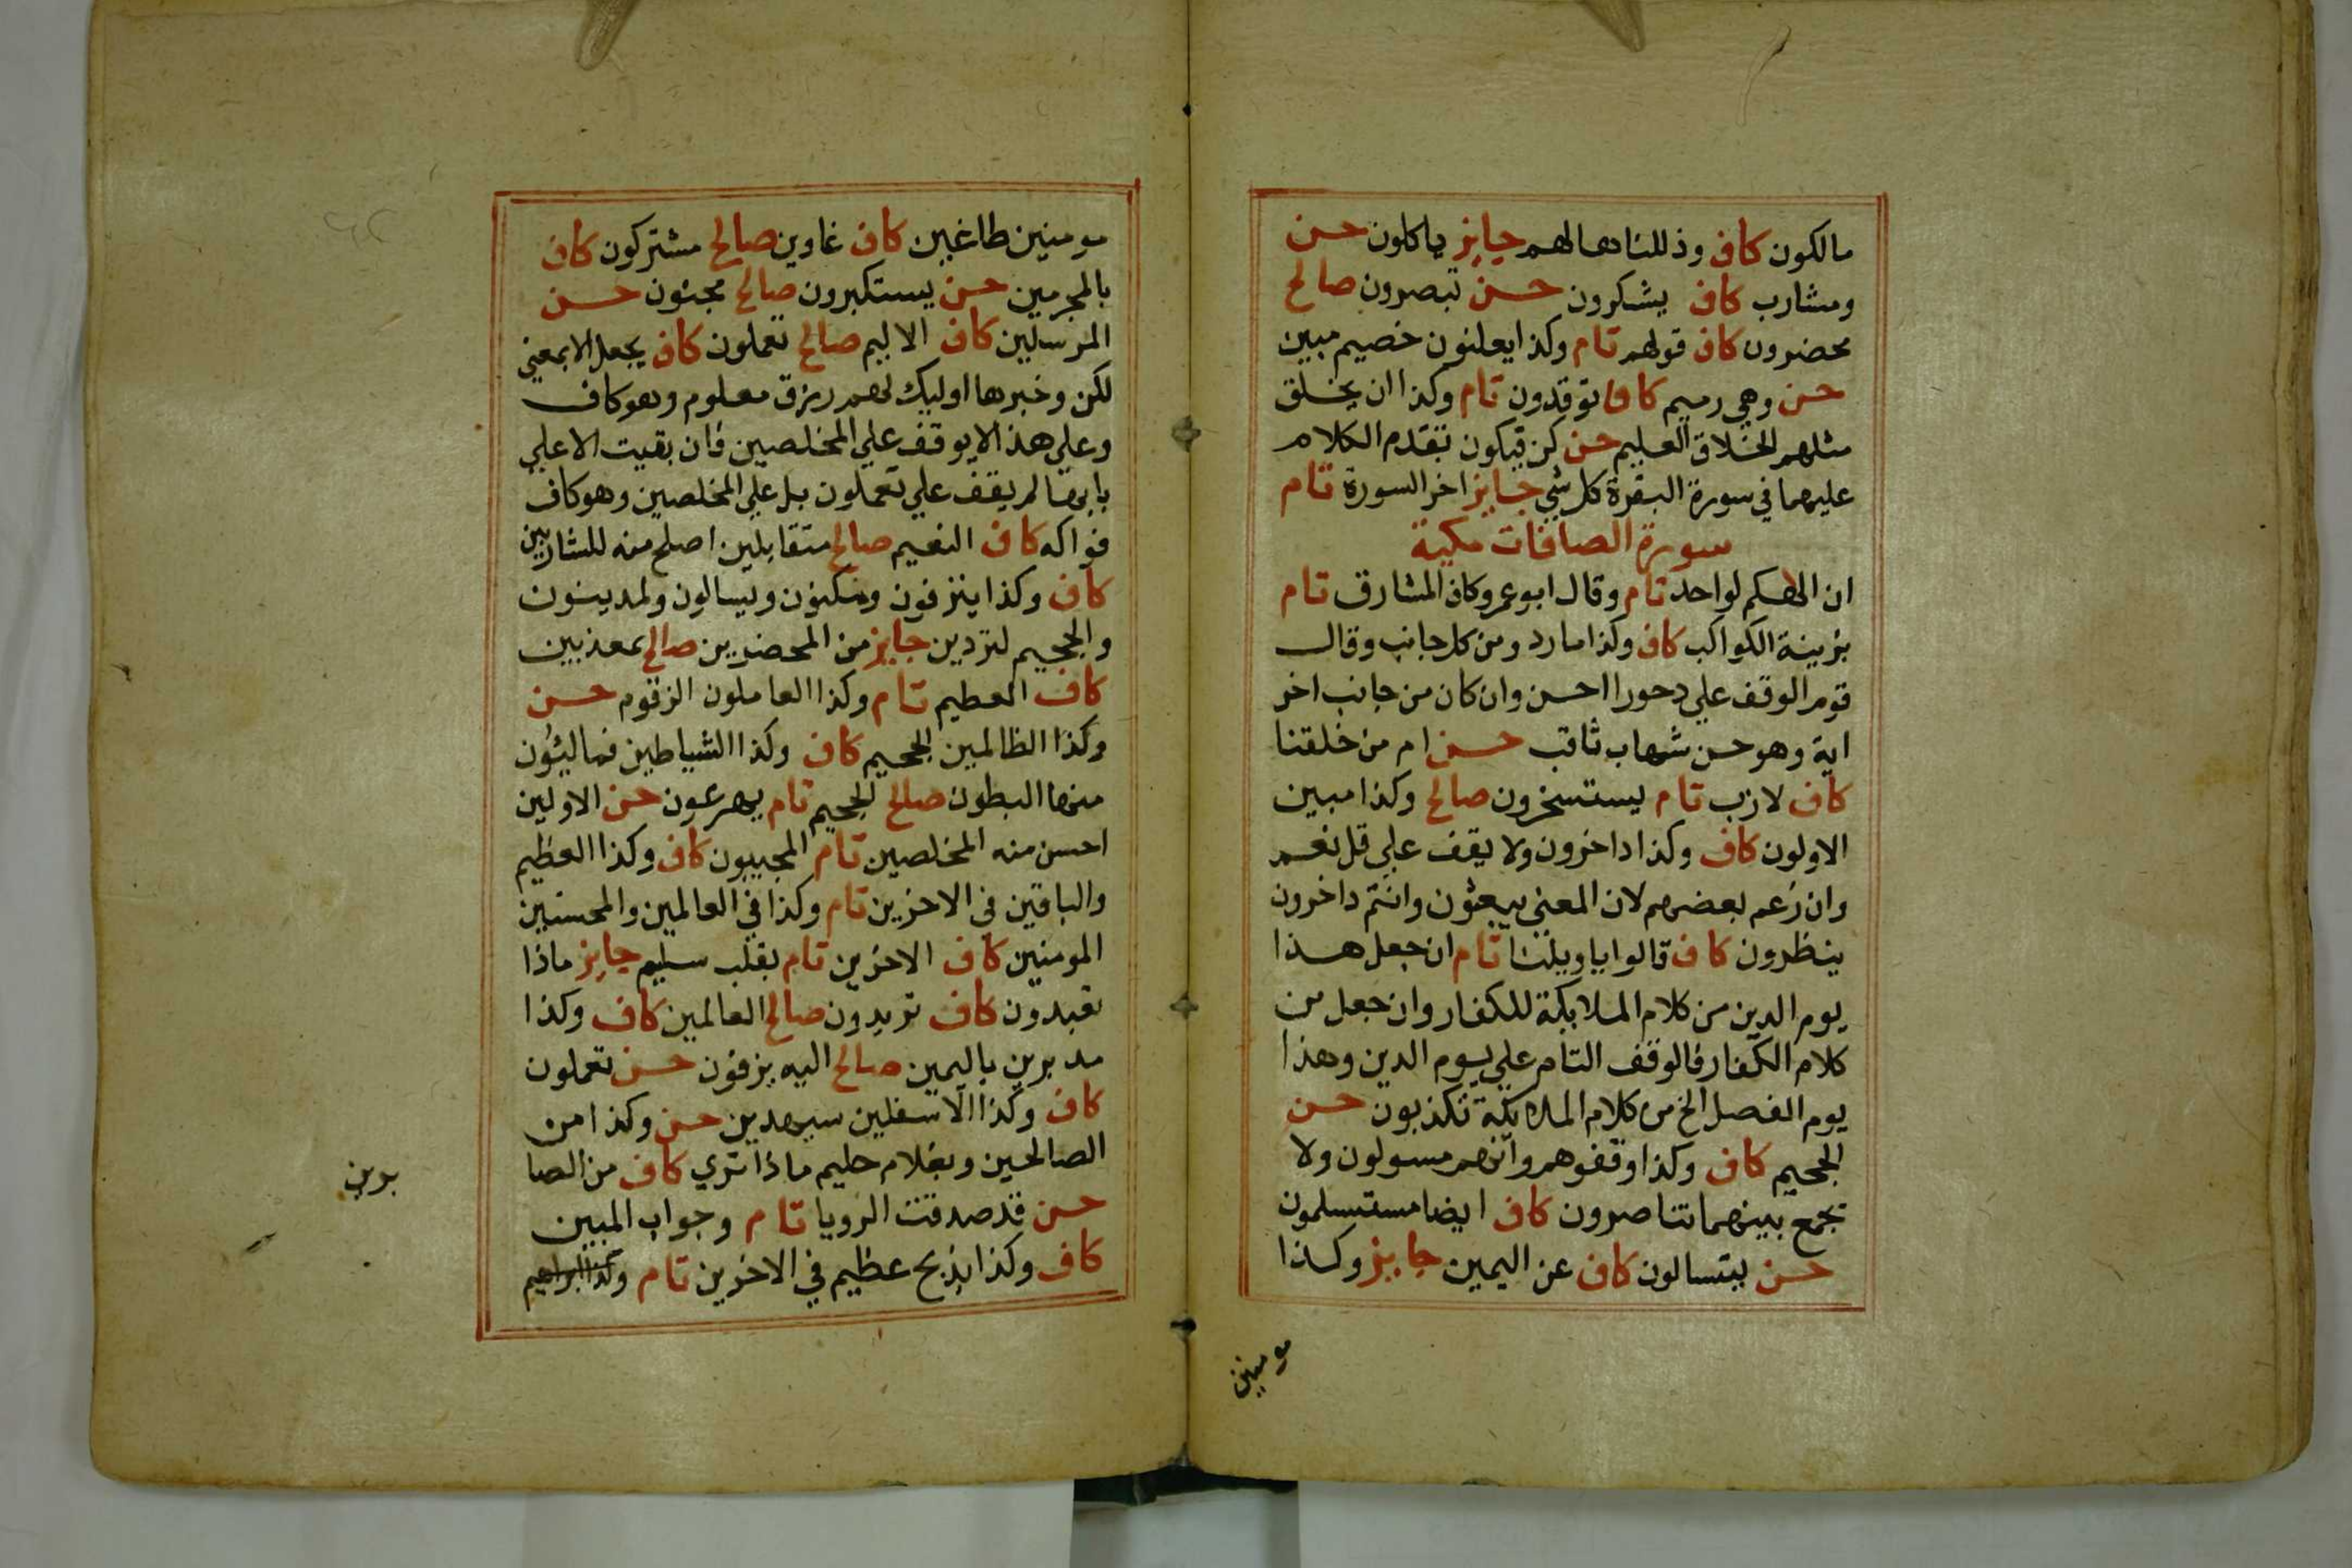 مالكون كاف وذللناها لهم جايز ياكلون حسن
ومشارب كاف يشكرون حسن تبصرون صالح
محضرون كاف قولهم تام وكذا يعلنون خصيم مبين
حسن وهي رميم كاف توقدون تام وكذا ان يخلق
مثلهم الخلاق العليم حسن كن فيكون تقدم الكلام
عليهما في سورة البقرة كل شي جايز اخر السورة تام
سورة الصافات مكية
ان الهكم لواحد تام وقال ابو عمرو كاف المشارق تام
بزينة الكواكب كاف وكذا مارد ومن كل جانب وقال
قوم الوقف علي دحورا احسن وان كان من جانب اخر
اية وهو حسن شهاب ثاقب حسن ام من خلقنا
كاف لازب تام يستسخرون صالح وكذا مبين
الاولون كاف وكذا داخرون ولا يقف علي قل نعم
وان زعم بعضهم لان المعني تبعثون وانتم داخرون
ينظرون كاف قالوا يا ويلنا تام ان جعل هذا
يوم الدين من كلام الملايكة للكفار وان جعل من
كلام الكفار فالوقف التام علي يوم الدين وهذا
يوم الفصل الخ من كلام الملايكة تكذبون حسن
الجحيم كاف وكذا وقفوهم وانهم مسولون ولا
تجمع بينهما تناصرون كاف ايضا مستسلمون
حسن يتسالون كاف عن اليمين جايز وكذا
مومنين
مومنين طاغين كاف غاوين صالح مشتركون كاف
بالمجرمين حسن يستكبرون صالح مجنون حسن
المرسلين كاف الاليم صالح تعملون كاف بجعل الا بمعني
لكن وخبرها اوليك لهم رزق معلوم وهو كاف
وعلي هذا لا يوقف علي المخلصين فان بقيت الا علي
بابها لم يقف علي تعملون بل علي المخلصين وهو كاف
فواكه كاف النعيم صالح متقابلين اصلح منه للشاربين
كاف وكذا ينزفون ومكنون ويسالون ولمدينون
والجحيم لتردين جايز من المحضرين صالح بمعذبين
كاف العظيم تام وكذا العاملون الزقوم حسن
وكذا الظالمين الجحيم كاف وكذا الشياطين فمالئون
منها البطون صالح الجحيم تام يهرعون حسن الاولين
احسن منه المخلصين تام المجيبون كاف وكذا العظيم
والباقين في الاخرين تام وكذا في العالمين والمحسنين
المومنين كاف الاخرين تام بقلب سليم جايز ماذا
تعبدون كاف تريدون صالح العالمين كاف وكذا
مدبرين باليمين صالح اليه يزفون حسن تعملون
كاف وكذا الاسفلين سيهدين حسن وكذا من
الصالحين وبغلام حليم ماذا تري كاف من الصا
برين
حسن قد صدقت الرويا تام وجواب المبين
كاف وكذا بذبح عظيم في الاخرين تام وكذا ابراهيم